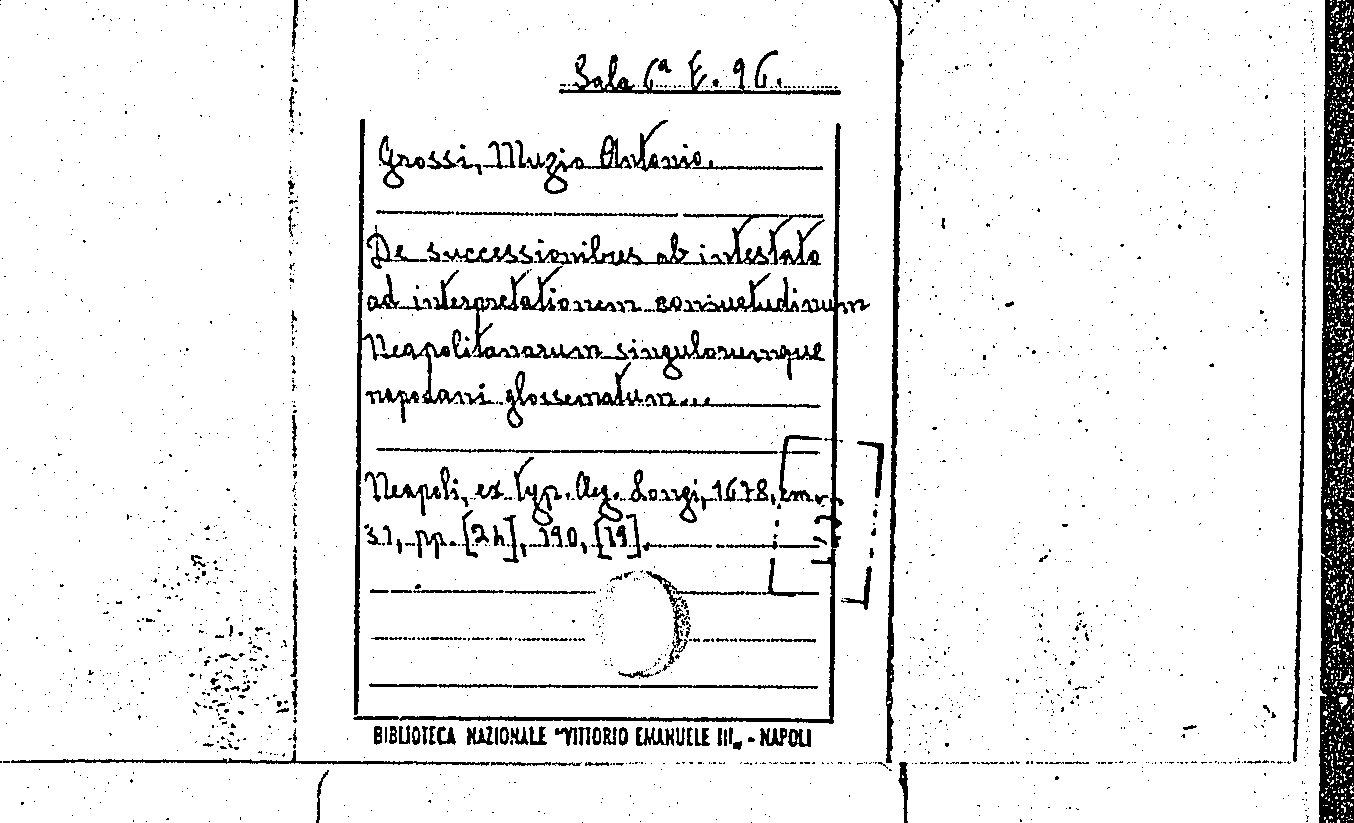 Sala 6ª E. 96.
Grossi, Muzio Antonio.
De successionibus ab intestato
ad interpretationem consuetudinum
Neapolitanarum singularumque
napodani glossematum...
Neapoli, ex typ. Aeg. Longi, 1678, cm.
31, pp. [24], 190, [19].
BIBLIOTECA NAZIONALE "VITTORIO EMANUELE III„ - NAPOLI